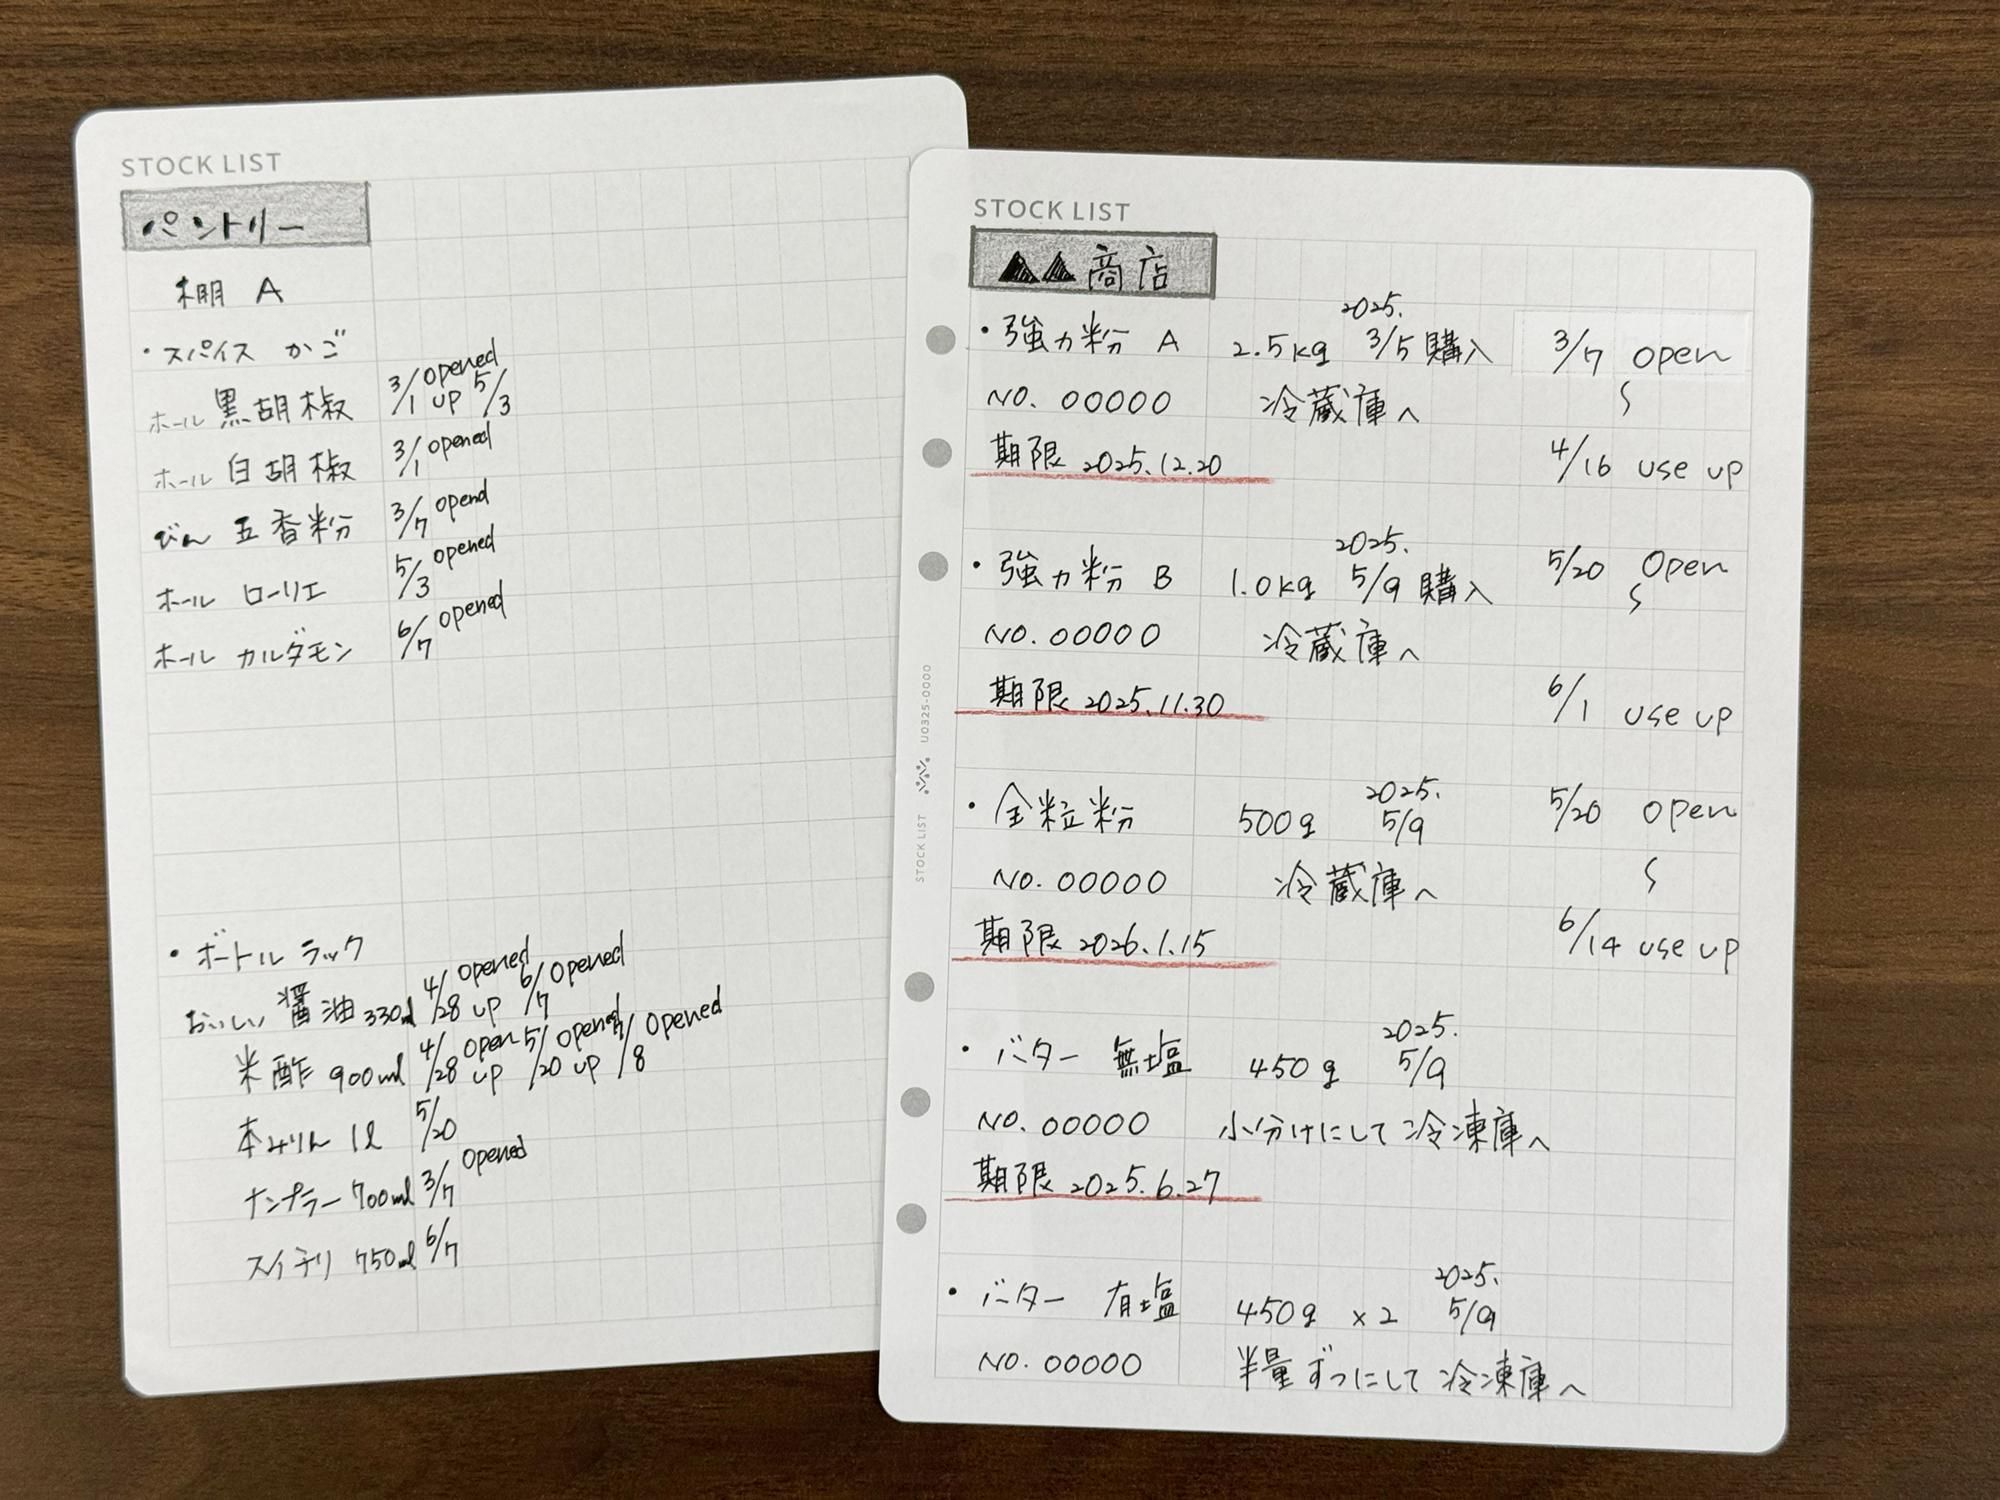 STOCK LIST
パントリー
棚 A
・スパイス かご
ホール 黒胡椒 3/1 opened up 5/3
ホール 白胡椒 3/1 opened
びん 五香粉 3/7 opend
ホール ローリエ 5/3 opened
ホール カルダモン 6/7 opened
・ボトル ラック
おいしい 醤油 330ml 4/28 opened up 6/7 opened
米酢 900ml 4/28 open up 5/20 opened up /8 opened
本みりん 1ℓ 5/20
ナンプラー 700ml 3/7 opened
スイチリ 750ml 6/7
STOCK LIST
▲▲商店
・強力粉 A 2.5kg 2025. 3/5 購入 3/7 open
NO. 00000 冷蔵庫へ 〜
期限 2025.12.20 4/16 use up
・強力粉 B 1.0kg 2025. 5/9 購入 5/20 open
NO. 00000 冷蔵庫へ 〜
期限 2025.11.30 6/1 use up
・全粒粉 500g 2025. 5/9 5/20 open
NO. 00000 冷蔵庫へ 〜
期限 2026.1.15 6/14 use up
・バター 無塩 450g 2025. 5/9
NO. 00000 小分けにして 冷凍庫へ
期限 2025.6.27
・バター 有塩 450g ×2 2025. 5/9
NO. 00000 半量ずつにして 冷凍庫へ
STOCK LIST U0325-0000